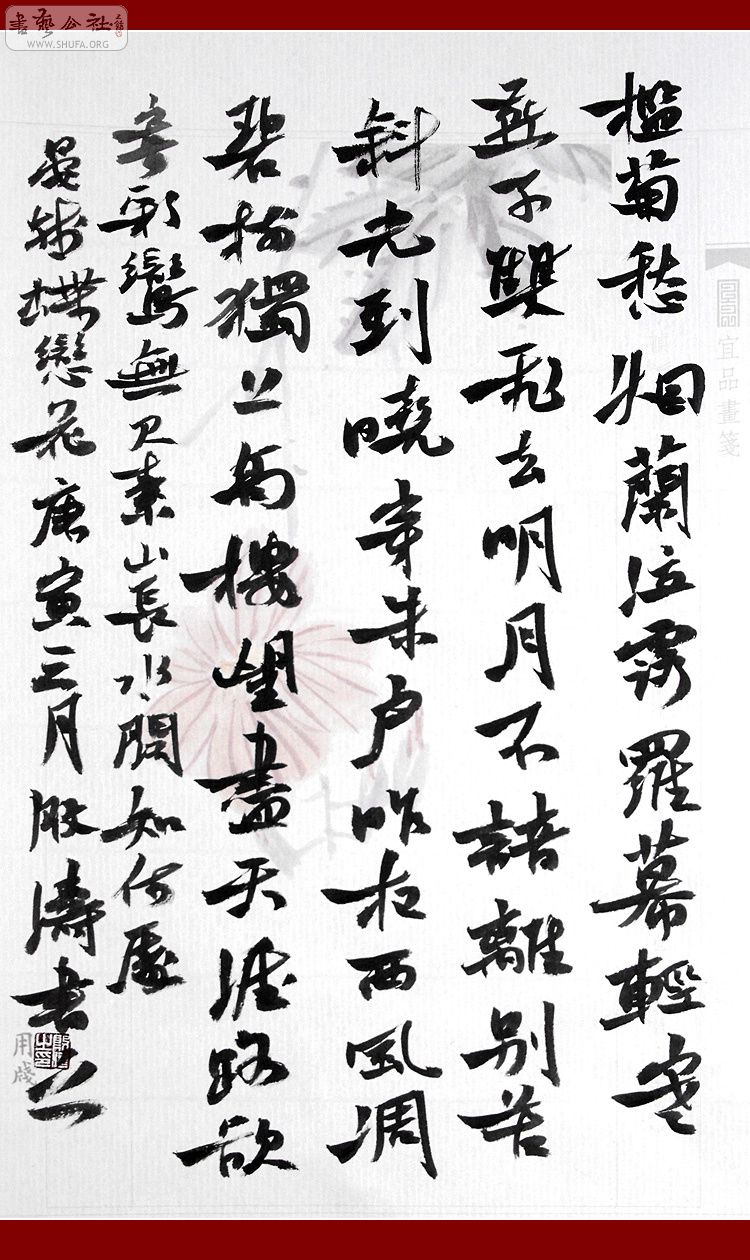 書藝公社
WWW.SHUFA.ORG
檻菊愁烟蘭泣露羅幕輕寒
燕子雙飛去明月不諳離别苦
斜光到曉穿朱户昨夜西風凋
碧樹獨上高樓望盡天涯路欲
寄彩鸞無尺素山長水闊知何處
晏殊蝶戀花庚寅三月殷濤書之
宜品畫箋
用箋